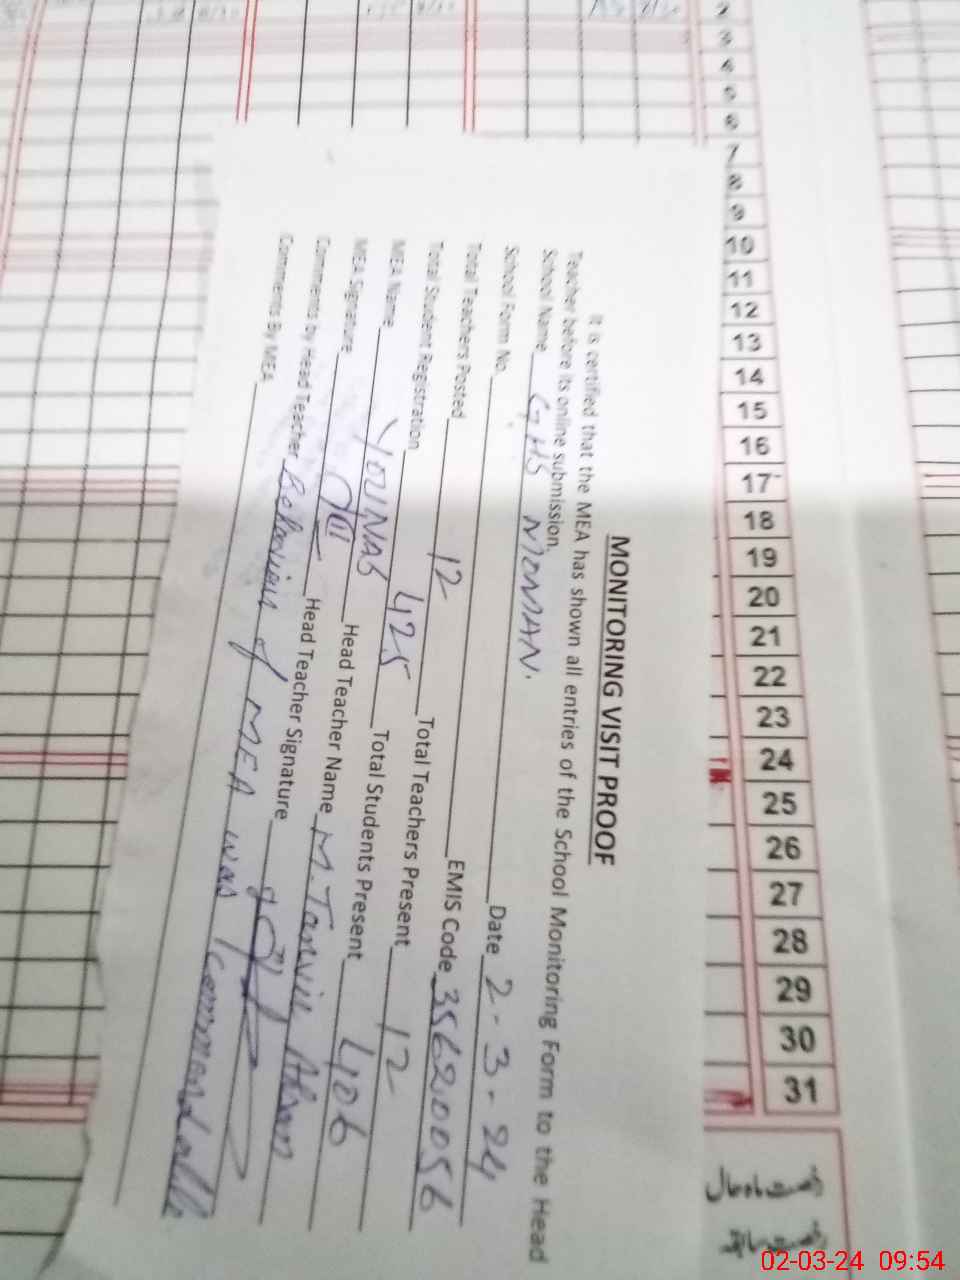 MONITORING VISIT PROOF
It is certified that the MEA has shown all entries of the School Monitoring Form to the Head
Teacher before its online submission.
School Name GHS MOMAN.
School Form No. Date 2-3-24
Total Teachers Posted 12 EMIS Code 35620056
Total Student Registration 425 Total Teachers Present 12
MEA Name YOUNAS Total Students Present 406
MEA Signature Head Teacher Name M. Tanvir
Comments by Head Teacher Head Teacher Signature
Behaviour of MEA was commendable
Comments By MEA
2
3
4
5
6
7
8
9
10
11
12
13
14
15
16
17
18
19
20
21
22
23
24
25
26
27
28
29
30
31
02-03-24 09:54